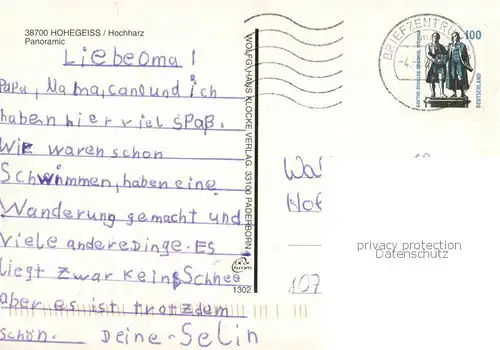 38700 HOHEGEISS / Hochharz
Panoramic
Liebeoma!
Papa, Mama, carlound ich
haben hier viel spaß.
Wir waren schon
Schwimmen, haben eine
Wanderung gemacht und
viele andere Dinge. Es
liegt zwar kein Schnee
aber es ist trotzdem
schön. Deine-Selin
WOLFG. HANS KLOCKE VERLAG, 33100 PADERBORN
1302
BRIEFZENTRUM
100
GOETHE-SCHILLER-DENKMAL WEIMAR
DEUTSCHLAND
privacy protection
Datenschutz
107